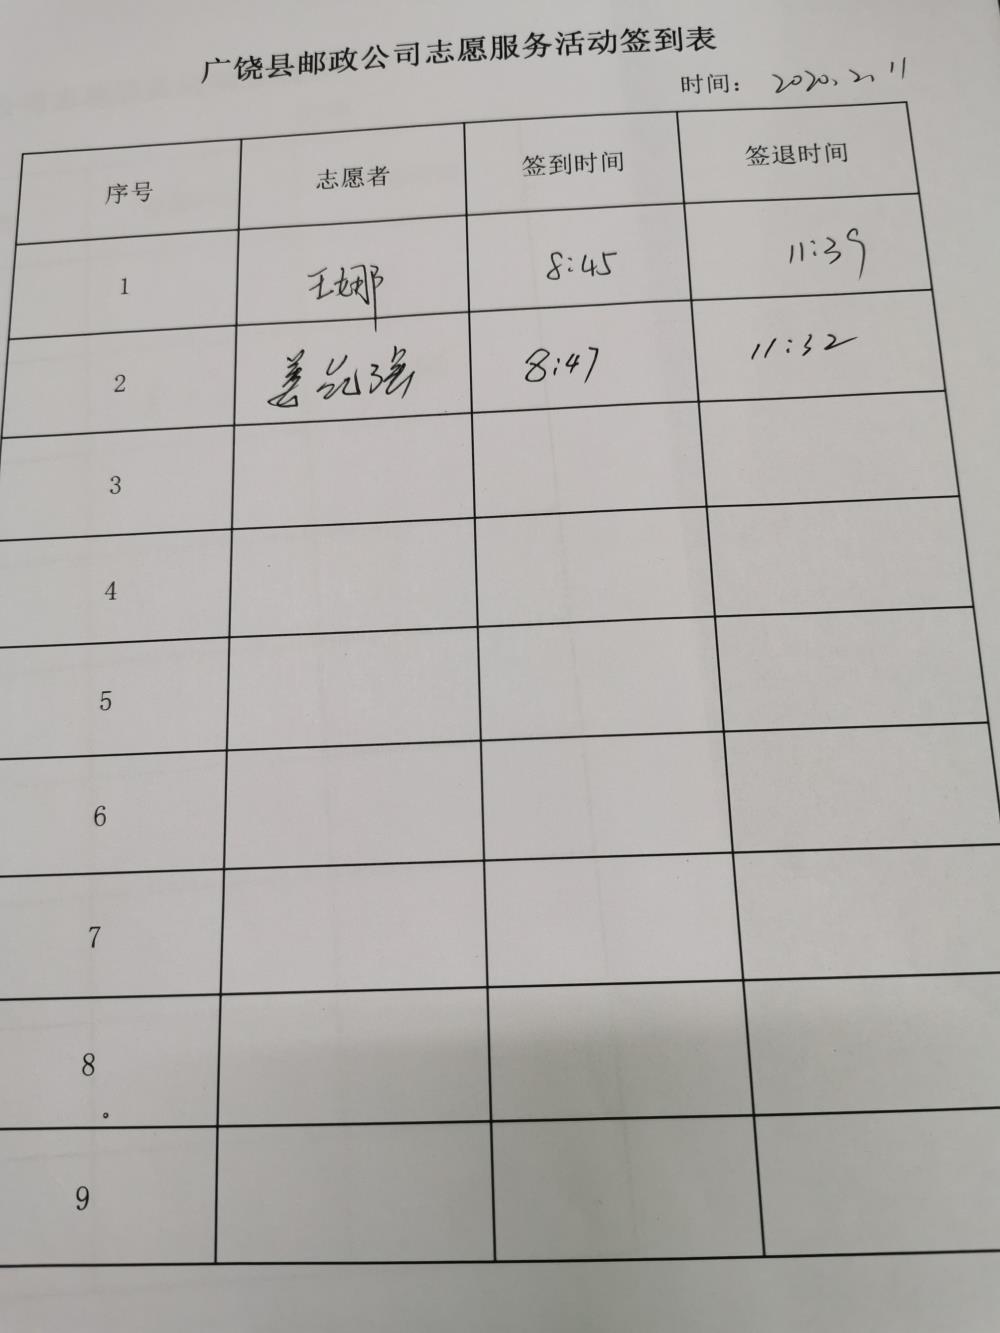 广饶县邮政公司志愿服务活动签到表
时间: 2020.2.11
序号 志愿者 签到时间 签退时间
1 王娜 8:45 11:39
2 姜 强 8:47 11:32
3
4
5
6
7
8
9